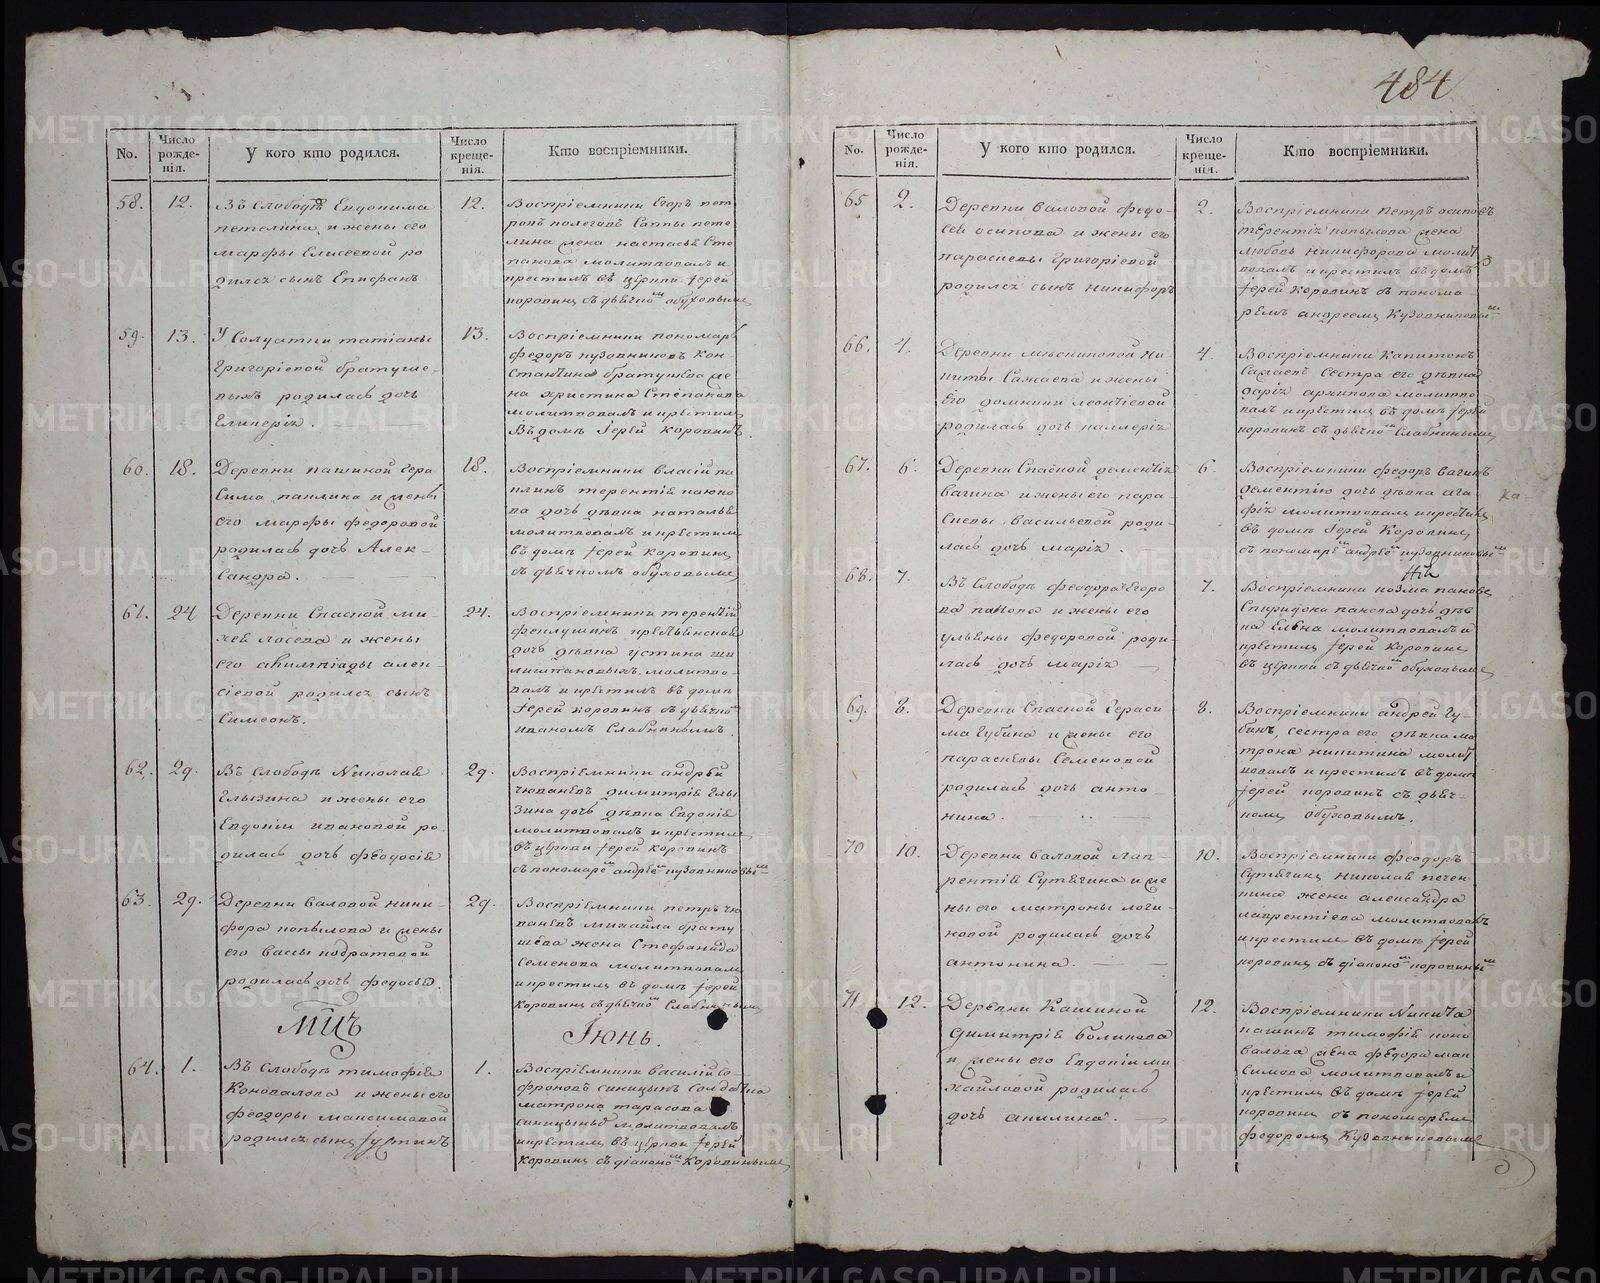 484
No.
Число рожде-нія.
У кого кто родился.
Число креще-нія.
Кто воспріемники.
58.
12.
Въ слободѣ Евдокима
петелина и жены его
марфы Елисеевой ро
дился сынъ Епифанъ
12.
Воспріемники Егоръ пет
ровъ
жена настасья Сте
панова молитвовалъ и
крестилъ въ церкви іерей
коровинъ съ дьячкомъ обуховымъ
59.
13.
У Солдатки татіаны
Григоріевой братуше-
выхъ родилась дочь
Гликерія.
13.
Воспріемники пономарь
федоръ кузовниковъ кон
стантина братушева же
на христина Степанова
молитвовалъ и крестилъ
Въ домѣ Іерей коровинъ.
60.
18.
Деревни пашиной Гера
сима паклина и жены
его марфы федоровой
родилась дочь Алек-
сандра.
18.
Воспріемники власій па
клинъ терентія
ва дочь дѣвка наталья
молитвовалъ и крестилъ
въ домѣ іерей коровинъ
съ дьячкомъ обуховымъ
61.
24
Деревни Спасной ми-
хея лосева и жены
его алимпіады алек-
сіевой родился сынъ
симеонъ.
24.
Воспріемники терентій
дочь дѣвка устина
молитво-
валъ и крестилъ въ домѣ
іерей коровинъ съ дьячкомъ
иваномъ Слабнинымъ.
62.
29.
Въ слободѣ Николая
Глызина и жены его
Евдокіи ивановой ро
дилась дочь феодосія
29.
Воспріемники андрей
чюваневъ димитрія Глы
зина дочь дѣвка Евдокія
молитвовалъ и крестилъ
въ церкви іерей коровинъ
съ пономаремъ андреемъ кузовниковымъ
63.
29.
Деревни валовой ники-
фора копылова и жены
его васы кодратовой
родилась дочь федосья.
29.
Воспріемники петръ чю
ваневъ михаила брату
шева жена Стефанида
семенова молитвовалъ
и крестилъ въ домѣ іерей
коровинъ съ дьячкомъ Слабнинымъ
мцъ
Іюнь.
64.
1.
Въ Слободѣ тимофея
Коновалова и жены его
феодоры максимовой
родился сынъ іустинъ
1.
Воспріемники василій со-
фроновъ синицынъ солдатка
матрона тарасова
синицына молитвовалъ
и крестилъ въ церкви іерей
коровинъ съ діакономъ Коровинымъ
No.
Число рожде-нія.
У кого кто родился.
Число креще-нія.
Кто воспріемники.
65
2.
Деревни валовой федо-
сея осипова и жены его
параскевы григоріевой
родился сынъ никифоръ
2.
Воспріемники петръ осиповъ
терентія копылова жена
любовь никифорова молит
вовалъ и крестилъ въ домѣ
іерей коровинъ съ понома-
ремъ андреемъ Кузовниковымъ
66.
4.
Деревни мясниковой ни
киты Сажаева и жены
его домники леонтіевой
родилась дочь каллерія
4.
Воспріемники Капитонъ
Сажаевъ сестра его дѣвка
дарія архипова молитво
валъ и крестилъ въ домѣ іерей
коровинъ съ дьячкомъ Слабнинымъ
67.
6.
Деревни Спасной дементія
вагина и жены его пара-
скевы васильевой роди-
лась дочь марія.
6.
Воспріемники федоръ вагинъ
дементію дочь дѣвка ага-
фія молитвовалъ и крестилъ
въ домѣ Іерей Коровинъ
съ пономаремъ андреемъ кузовниковымъ
68.
7.
Въ Слободѣ феодора Егоро
ва панова и жены его
ульяны федоровой роди-
лась дочь марія
7.
Воспріемники козма пановъ
Спиридона панова дочь дѣв
ка Елена молитвовалъ и
крестилъ іерей Коровинъ
въ церкви съ дьячкомъ обуховымъ
69.
8.
Деревни Спасной Гераси-
ма Губина и жены его
параскевы Семеновой
родилась дочь анто-
нина.
8.
Воспріемники андрей Гу-
бинъ, сестра его дѣвка ма
трона никитина молит
вовалъ и крестилъ въ домѣ
іерей коровинъ съ дьяч-
комъ обуховымъ.
70
10.
Деревни валовой лав-
рентія Сутягина и же
ны его матроны логи-
новой родилась дочь
антонина.
10.
Воспріемники феодоръ
Сутягинъ николая печен
кина жена александра
лаврентіева молитвовалъ
и крестилъ въ домѣ іерей
коровинъ съ діакономъ коровинымъ
71
12.
Деревни Кашиной
димитрія боликова
и жены его Евдокіи ми
хайловой родилась
дочь акилина.
12.
Воспріемники Никита
кашинъ тимофея коно
валова жена федора мак
симова молитвовалъ и
крестилъ въ домѣ іерей
коровинъ съ пономаремъ
федоромъ Кузовниковымъ
METRIKI.GASO-URAL.RU